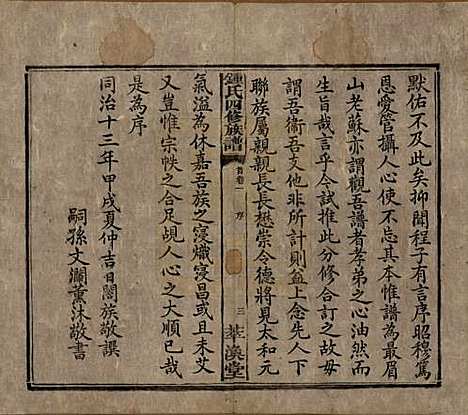 默佑不及此矣抑聞程子有言序昭穆篤
恩愛管攝人心使不忘其本惟譜為最眉
山老蘇亦謂觀吾譜者孝弟之心油然而
生旨哉言乎今以此分修合訂之故毋
謂吾衞吾支他非所計則盍上念先人下
聯族屬親親長長懋崇令德將見太和元
鍾氏四修族譜
首卷一 序 三 萃渙堂
氣溢為休嘉吾族之寖熾寖昌或且未艾
又豈惟宗帙之合足覘人心之大順已哉
是為序
同治十三年甲戌夏仲吉日闔族敬譔
嗣孫文瀾薰沐敬書